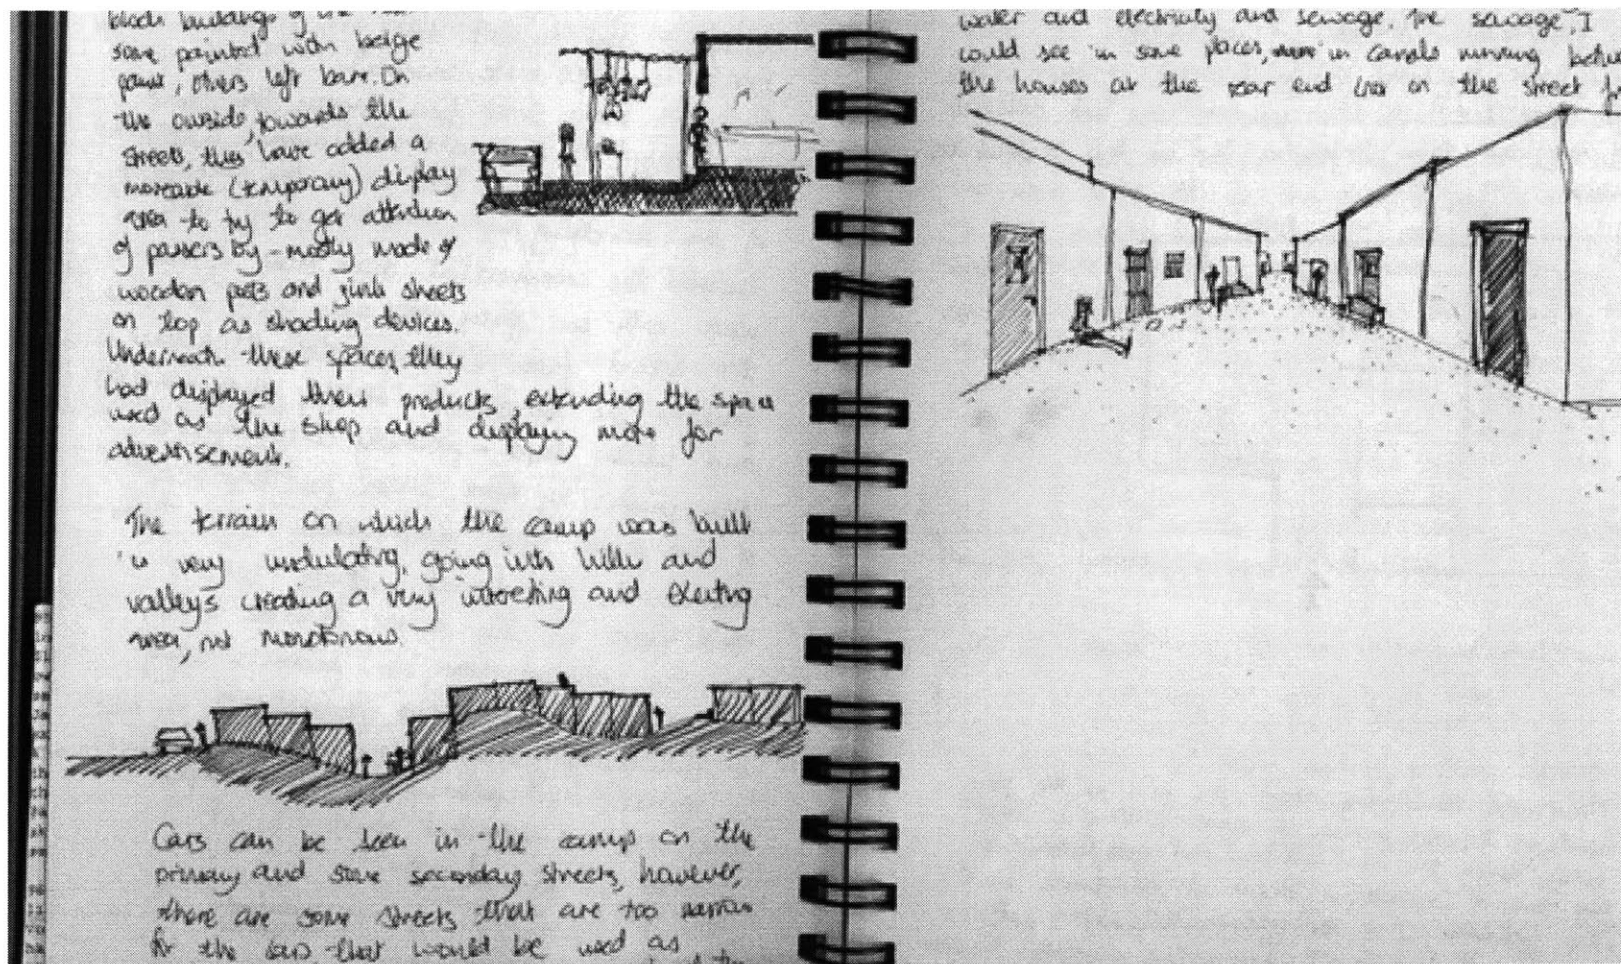 block buildings of the
some painted with beige
paint, others left bare. On
the outside, towards the
streets, they have added a
moveable (temporary) display
area to try to get attention
of passers by - mostly made of
wooden posts and zink sheets
on top as shading devices.
Underneath these spaces, they
had displayed their products, extending the space
used as the shop and displaying more for
advertisement.
The terrain on which the camp was built
is very undulating, going with hills and
valleys creating a very interesting and exciting
area, not monotonous.
Cars can be seen in the camp on the
primary and some secondary streets, however,
there are some streets that are too narrow
for the cars that would be used as
water and electricity and sewage. The sewage, I
could see in some places, in canals running
the houses at the rear end or on the street